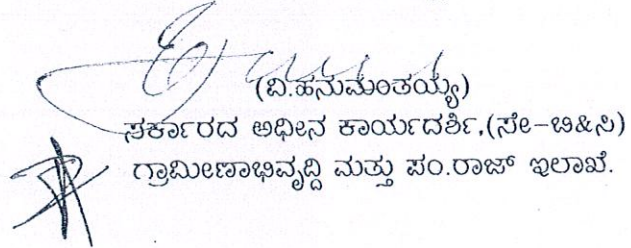 (ವಿ.ಹನುಮಂತಯ್ಯ)
ಸರ್ಕಾರದ ಅಧೀನ ಕಾರ್ಯದರ್ಶಿ,(ಸೇ-ಬಿ&ಸಿ)
ಗ್ರಾಮೀಣಾಭಿವೃದ್ಧಿ ಮತ್ತು ಪಂ.ರಾಜ್ ಇಲಾಖೆ.